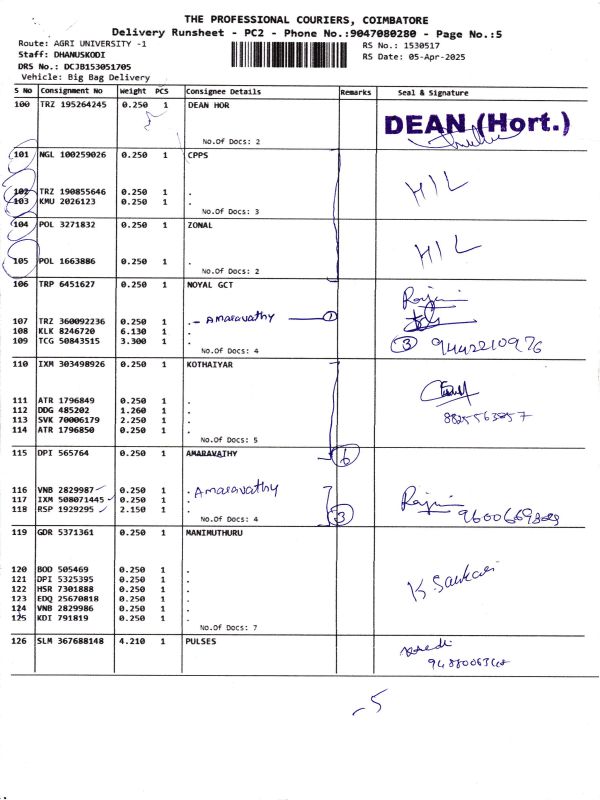 THE PROFESSIONAL COURIERS, COIMBATORE
Delivery Runsheet - PC2 - Phone No.:9047080280 - Page No.:5
Route: AGRI UNIVERSITY -1
RS No.: 1530517
Staff: DHANUSKODI
RS Date: 05-Apr-2025
DRS No.: DCJB153051705
Vehicle: Big Bag Delivery
S No Consignment No Weight PCS Consignee Details Remarks Seal & Signature
100 TRZ 195264245 0.250 1 DEAN HOR
DEAN (Hort.)
No.Of Docs: 2
101 NGL 100259026 0.250 1 CPPS
HIL
102 TRZ 190855646 0.250 1 .
103 KMU 2026123 0.250 1 .
No.Of Docs: 3
104 POL 3271832 0.250 1 ZONAL
HIL
105 POL 1663886 0.250 1 .
No.Of Docs: 2
106 TRP 6451627 0.250 1 NOYAL GCT
107 TRZ 360092236 0.250 1 . - Amaravathy 1
108 KLK 8246720 6.130 1 .
109 TCG 50843515 3.300 1 . 3 9442210976
No.Of Docs: 4
110 IXM 303498926 0.250 1 KOTHAIYAR
111 ATR 1796849 0.250 1 .
112 DDG 485202 1.260 1 .
113 SVK 70006179 2.250 1 .
114 ATR 1796850 0.250 1 .
No.Of Docs: 5
115 DPI 565764 0.250 1 AMARAVATHY 6
116 VNB 2829987 0.250 1 . Amaravathy
117 IXM 508071445 0.250 1 .
118 RSP 1929295 2.150 1 . 3
No.Of Docs: 4
119 GDR 5371361 0.250 1 MANIMUTHURU
120 BOD 505469 0.250 1 .
121 DPI 5325395 0.250 1 .
122 HSR 7301888 0.250 1 .
123 EDQ 25670818 0.250 1 .
124 VNB 2829986 0.250 1 .
125 KDI 791819 0.250 1 .
No.Of Docs: 7
126 SLM 367688148 4.210 1 PULSES
-5